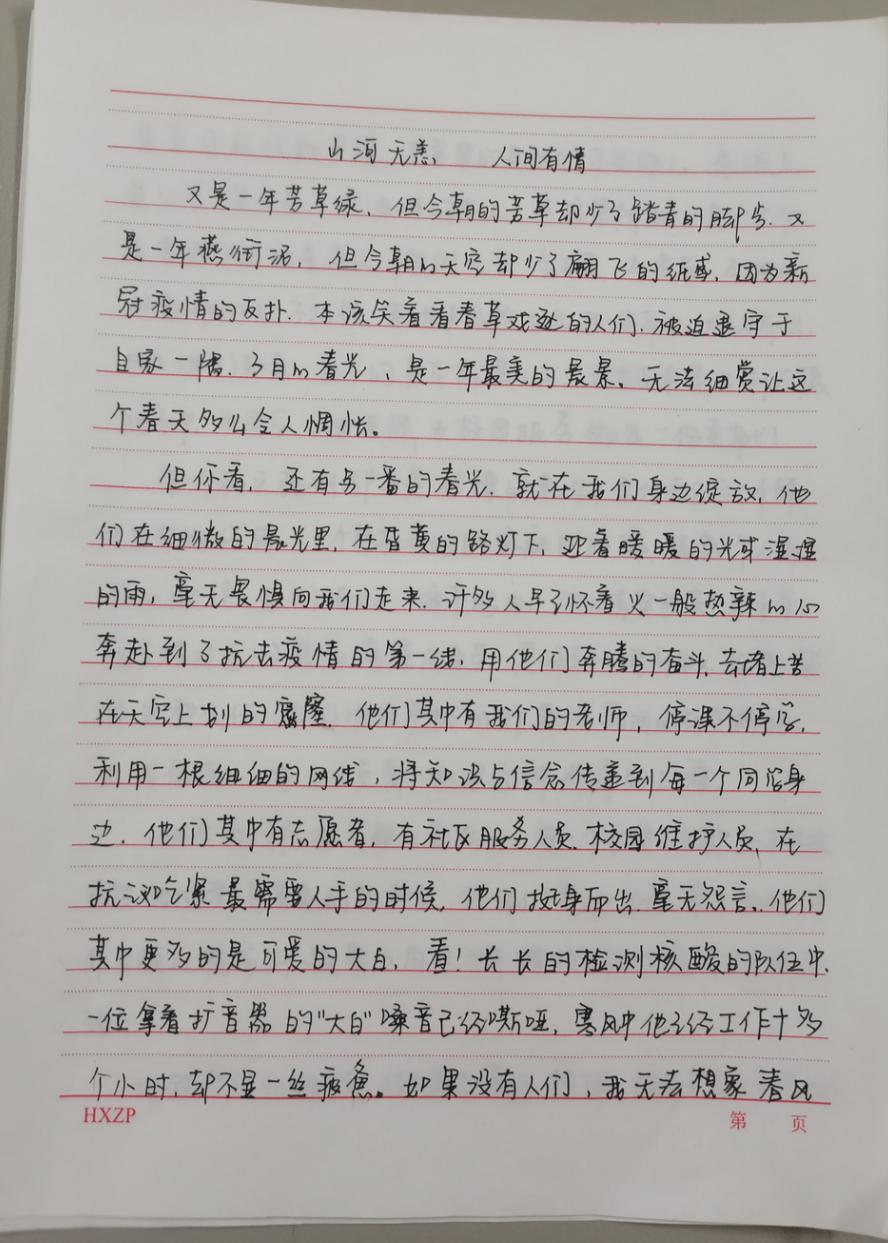 山河无恙 人间有情
又是一年芳草绿,但今朝的芳草却少了踏青的脚步.又
是一年燕衔泥,但今朝的天空却少了翩飞的纸鸢,因为新
冠疫情的反扑.本该笑着看看春草戏逐的人们.被迫退守于
自家一隅.3月的春光、是一年最美的晨景、无法细赏让这
个春天多么令人惆怅。
但你看,还有另一番的春光.就在我们身边绽放,他
们在细微的晨光里,在昏黄的路灯下,迎着暖暖的光或湿湿
的雨,毫无畏惧向我们走来.许多人早已怀着火一般热辣的心
奔赴到了抗击疫情的第一线.用他们奔腾的奋斗,去堵上苦
在天空上划的窟窿.他们其中有我们的老师,停课不停学,
利用一根细细的网线,将知识与信念传递到每一个同学身
边.他们其中有志愿者,有社区服务人员.校园维护人员,在
抗议吃紧最需要人手的时候,他们挺身而出.毫无怨言.他们
其中更多的是可爱的大白,看!长长的检测核酸的队伍中.
一位拿着扩音器的"大白"嗓音已经嘶哑,寒风中他已经工作十多
个小时,却不显一丝疲惫。如果没有人们,我无法想象春风
HXZP 第 页